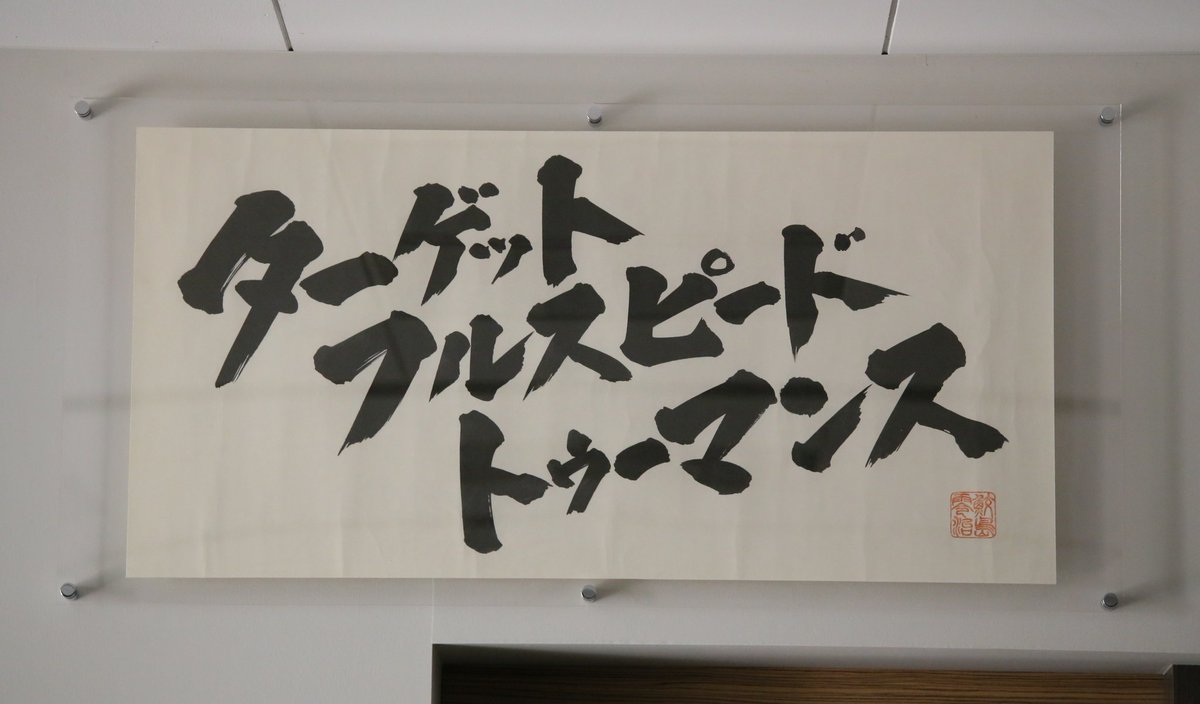 ターゲット
フルスピード
トゥーマンス
鮫島
零治